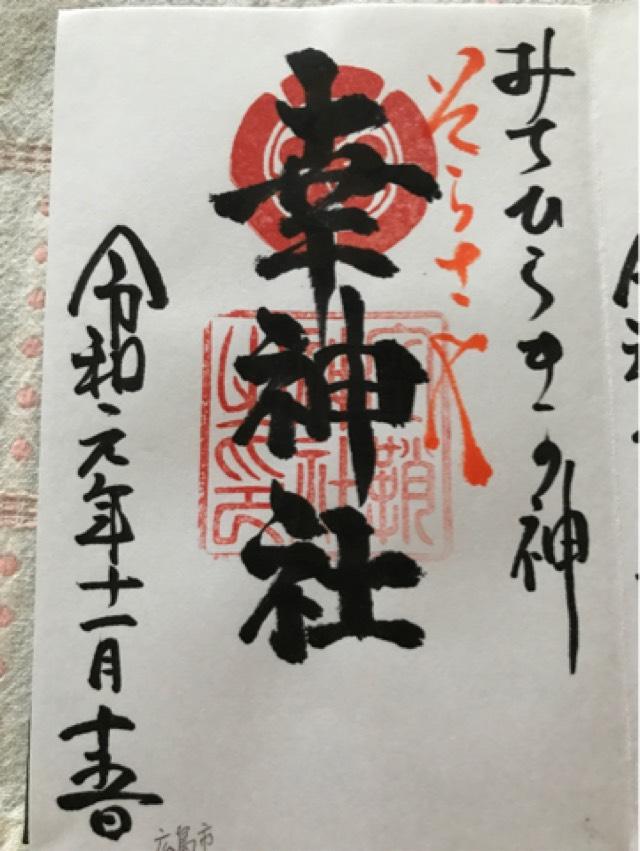 みちひらきの神
そらさや
幸神社
令和元年十一月十五日
広島市